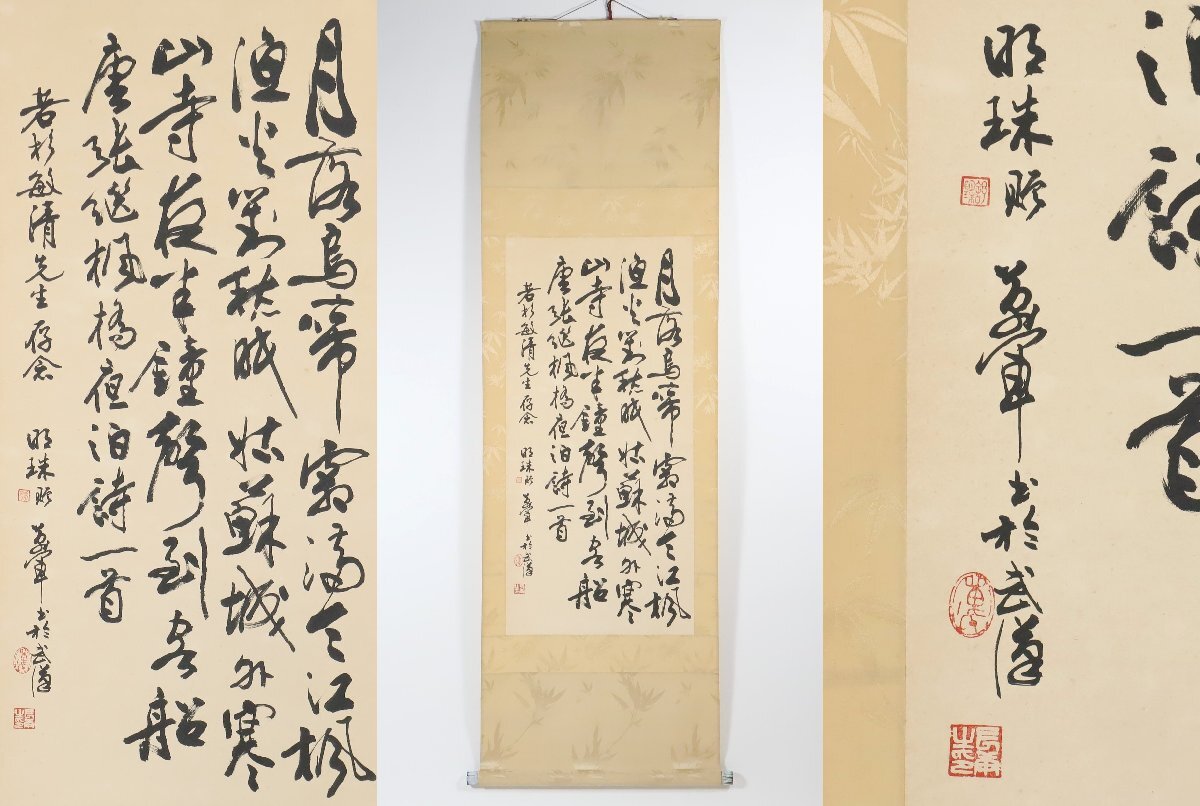 月落烏啼霜滿天江楓
漁火對愁眠姑蘇城外寒
山寺夜半鐘聲到客船
唐張繼楓橋夜泊詩一首
若杉敏清先生存念 明珠贈 書於武漢
月落烏啼霜滿天江楓
漁火對愁眠姑蘇城外寒
山寺夜半鐘聲到客船
唐張繼楓橋夜泊詩一首
若杉敏清先生存念 明珠贈 書於武漢
泊詩一首
明珠贈 書於武漢